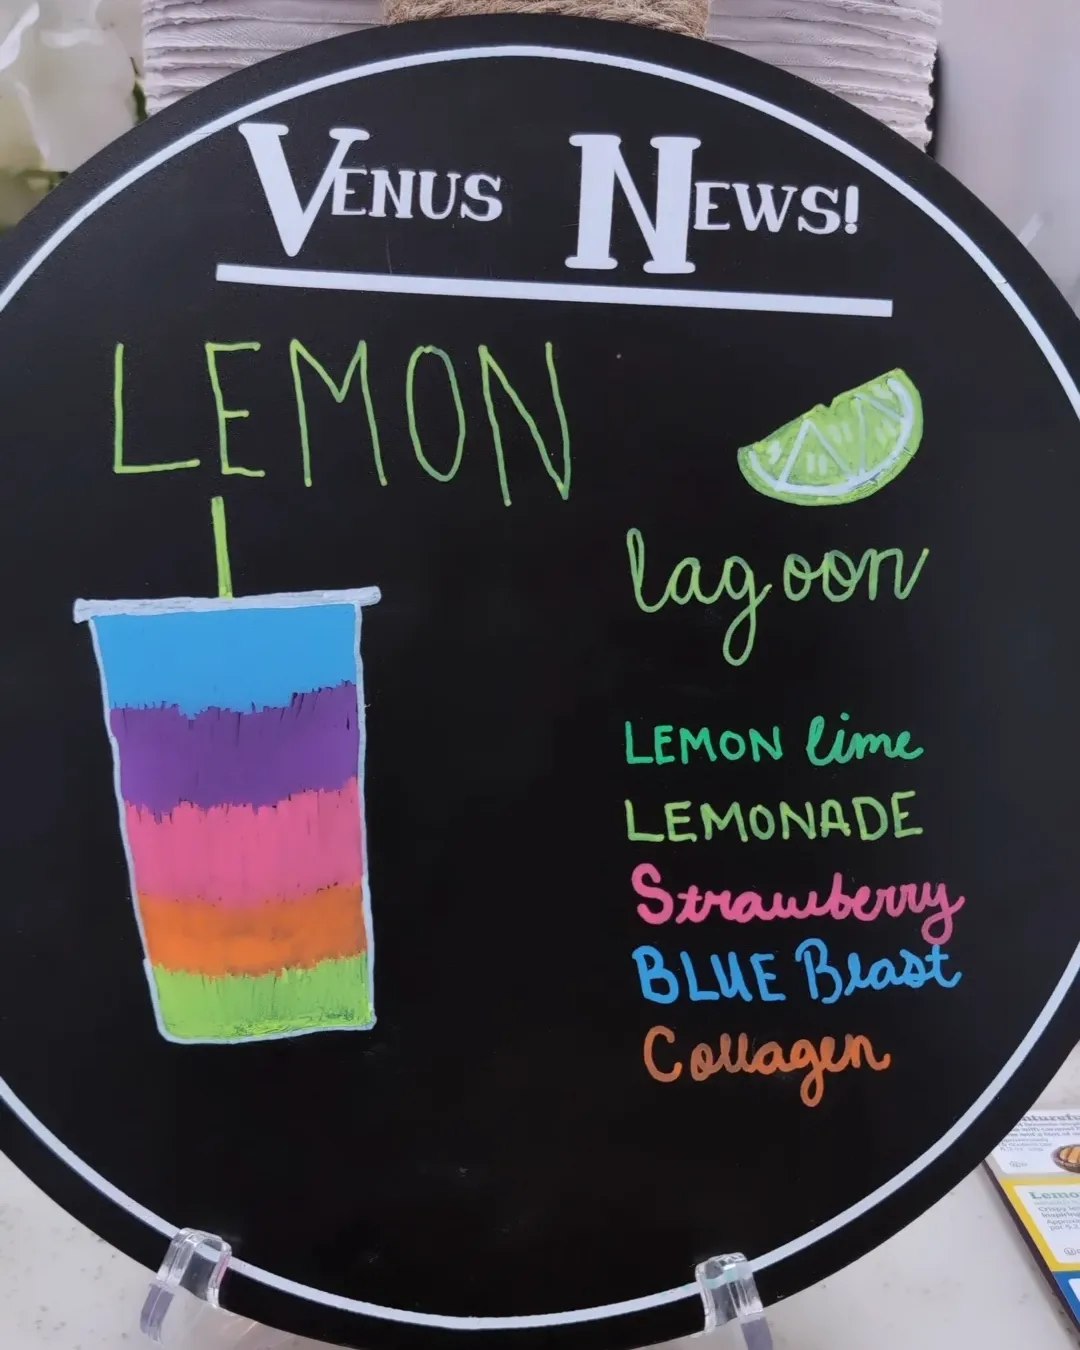 VENUS NEWS!
LEMON
lagoon
LEMON lime
LEMONADE
Strawberry
BLUE Blast
Collagen
Lemo
Crispy le